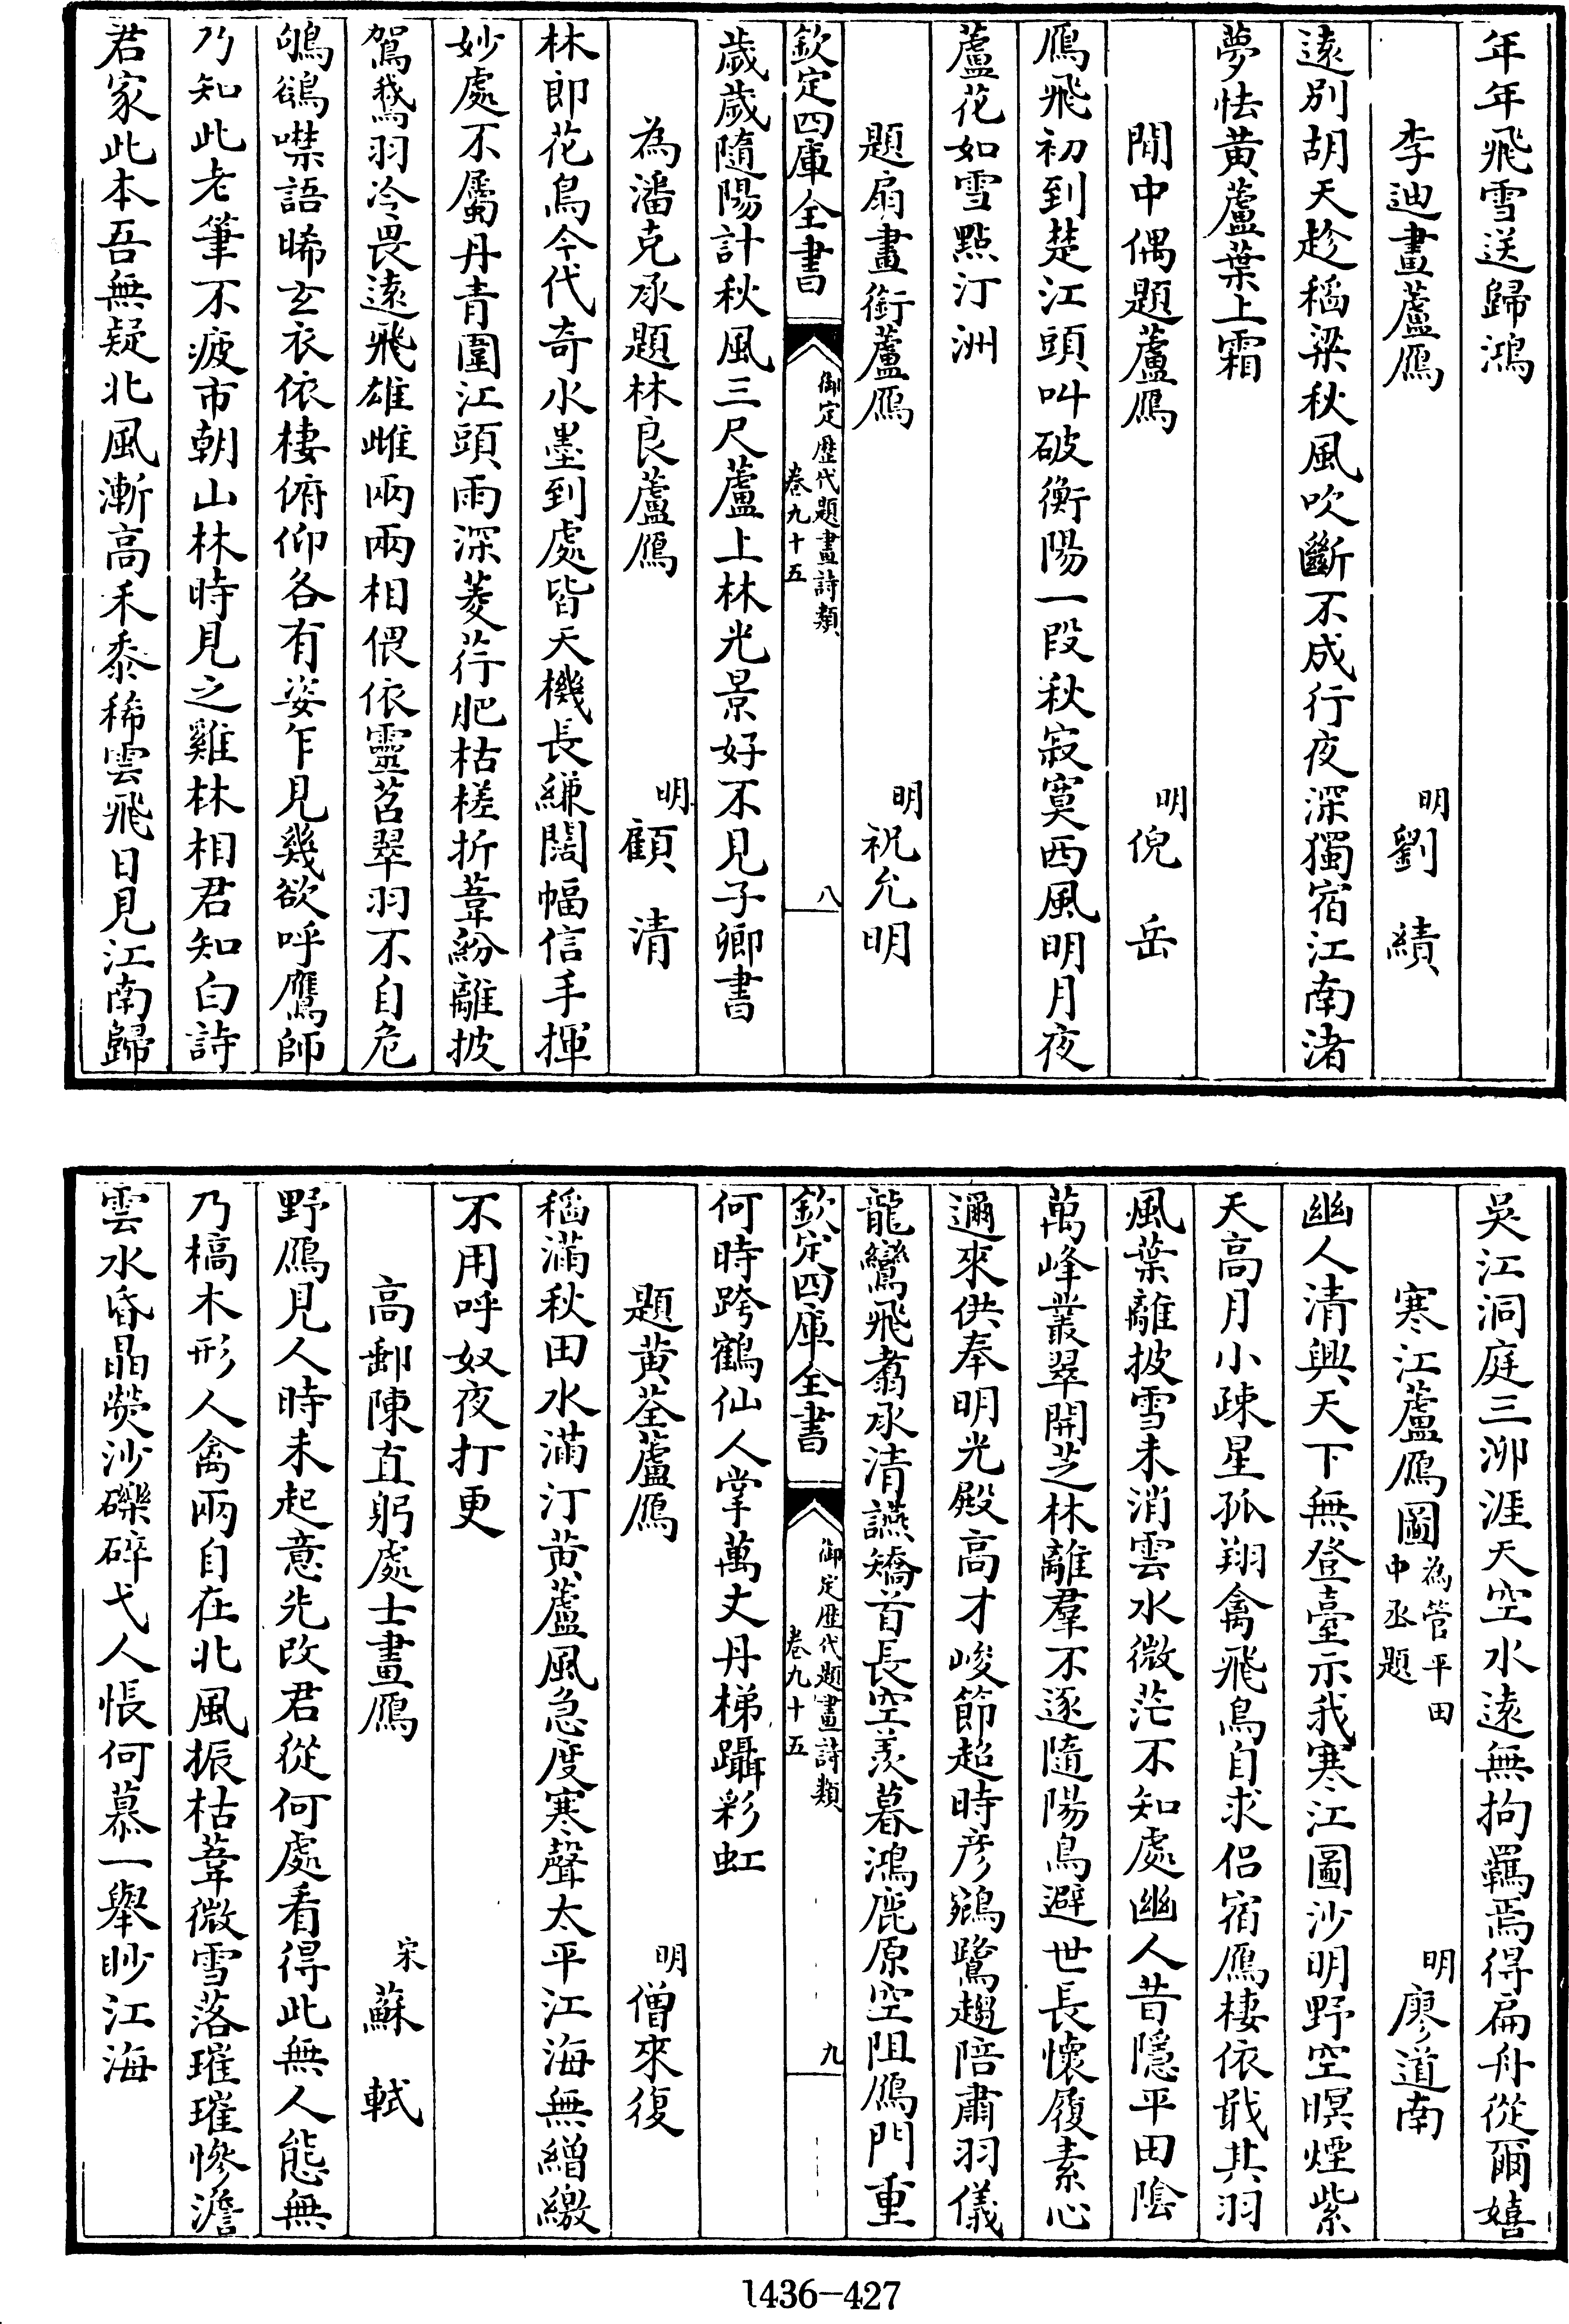 年年飛雪送歸鴻
李迪畫蘆鴈　明劉績
遠別胡天趁稻粱秋風吹斷不成行夜深獨宿江南渚
夢怯黃蘆葉上霜
閒中偶題蘆鴈　明倪岳
鴈飛初到楚江頭叫破衡陽一段秋寂寞西風明月夜
蘆花如雪點汀洲
題扇畫銜蘆鴈　明祝允明
欽定四庫全書　御定歷代題畫詩類　卷九十五　八
歲歲隨陽計秋風三尺蘆上林光景好不見子卿書
為潘克承題林良蘆鴈　明顧清
林郎花鳥今代奇水墨到處皆天機長縑闊幅信手揮
妙處不屬丹青圍江頭雨深菱荇肥枯槎折葦紛離披
鴐鵞羽冷畏遠飛雄雌兩兩相偎依靈茗翠羽不自危
鴝鵒噤語晞玄衣依棲俯仰各有姿乍見幾欲呼鷹師
乃知此老筆不疲市朝山林時見之雞林相君知白詩
君家此本吾無疑北風漸高禾黍稀雲飛日見江南歸
吳江洞庭三泖涯天空水遠無拘羈焉得扁舟從爾嬉
寒江蘆鴈圖　為管平田中丞題　明廖道南
幽人清興天下無登臺示我寒江圖沙明野空暝煙紫
天高月小疎星孤翔禽飛鳥自求侶宿鴈棲依戢其羽
風葉離披雪未消雲水微茫不知處幽人昔隱平田陰
萬峰叢翠開芝林離羣不逐隨陽鳥避世長懷履素心
邇來供奉明光殿高才峻節超時彥鵷鷺趨陪肅羽儀
龍鸞飛翥承清讌矯首長空羨暮鴻鹿原空阻鴈門重
欽定四庫全書　御定歷代題畫詩類　卷九十五　九
何時跨鶴仙人掌萬丈丹梯躡彩虹
題黃荃蘆鴈　明僧來復
稻滿秋田水滿汀黃蘆風急度寒聲太平江海無繒繳
不用呼奴夜打更
高郵陳直躬處士畫鴈　宋蘇軾
野鴈見人時未起意先改君從何處看得此無人態無
乃槁木形人禽兩自在北風振枯葦微雪落璀璀慘澹
雲水昏晶熒沙礫碎弋人悵何慕一舉眇江海
1436-427